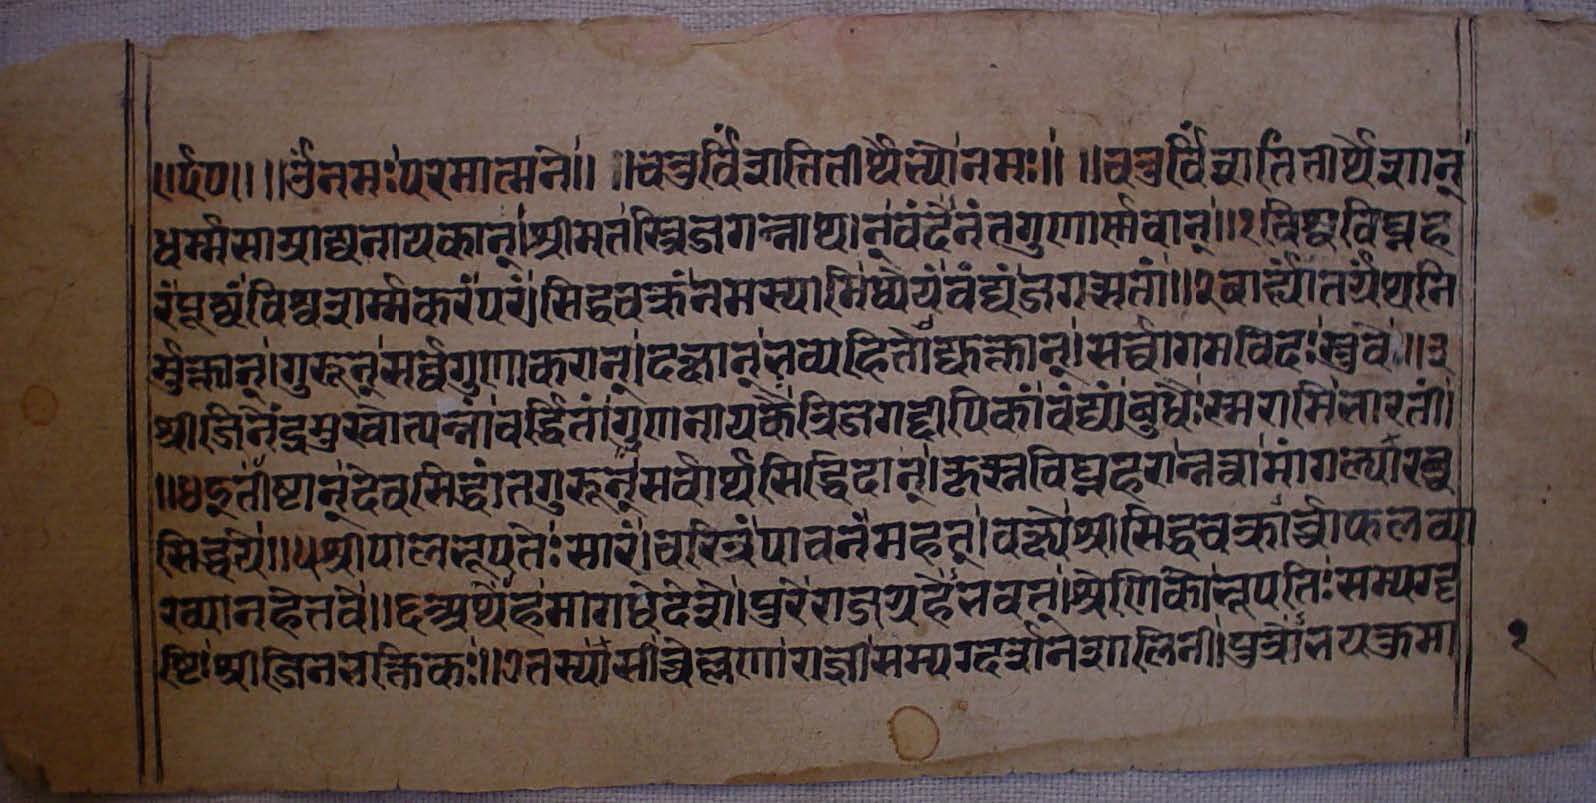 ॥र्ए०॥ ॥ॐनमःपरमात्मने॥ ॥चतुर्विंशतितीर्थेभ्योनमः॥ ॥चतुर्विंशतितीर्थेशान्
धर्म्मसाम्राद्यनायकान्।श्रीमतस्त्रिजगन्नाथान्वंदेनंतगुणार्मवान्॥१विश्वविघ्नह
रंपूद्यंविश्वशर्म्मकरंपरं।सिद्धचक्रंनमस्यामिध्येयंवंद्यंजगत्सतां॥२बाह्यांतर्ग्रंथनि
र्मुक्तान्।गुरून्सर्व्वगुणाकरान्।दक्षान्भव्यहितोद्युक्तान्।सर्व्वागमविदःस्तुवे॥३
श्रीजिनेंद्रमुखोत्पन्नांवर्द्धितांगुणनायकैःत्रिजगद्दीपिकांवंद्यांबुधैःस्मरामिभारतीं।
॥४इतीष्टान्देवसिद्धांतगुरून्सर्वार्थसिद्धिदान्।कृत्स्नविघ्नहरान्नत्वामांगल्यारब्ध
सिद्धये॥५श्रीपालनृपतेःसारं।चरित्रंपावनंमहत्।वक्ष्येश्रीसिद्धचक्रार्च्चाफलव्या
ख्यानहेतवे॥६अथेहमागधेदेशे।पुरेराजगृहेभवत्।श्रेणिकोनृपतिःसम्यग्दृ
ष्टिःश्रीजिनभक्तिकः॥७तस्यासीच्चेल्लणाराज्ञीसम्यग्दर्शनशालिनी।पुत्रोभयक्रमा
१